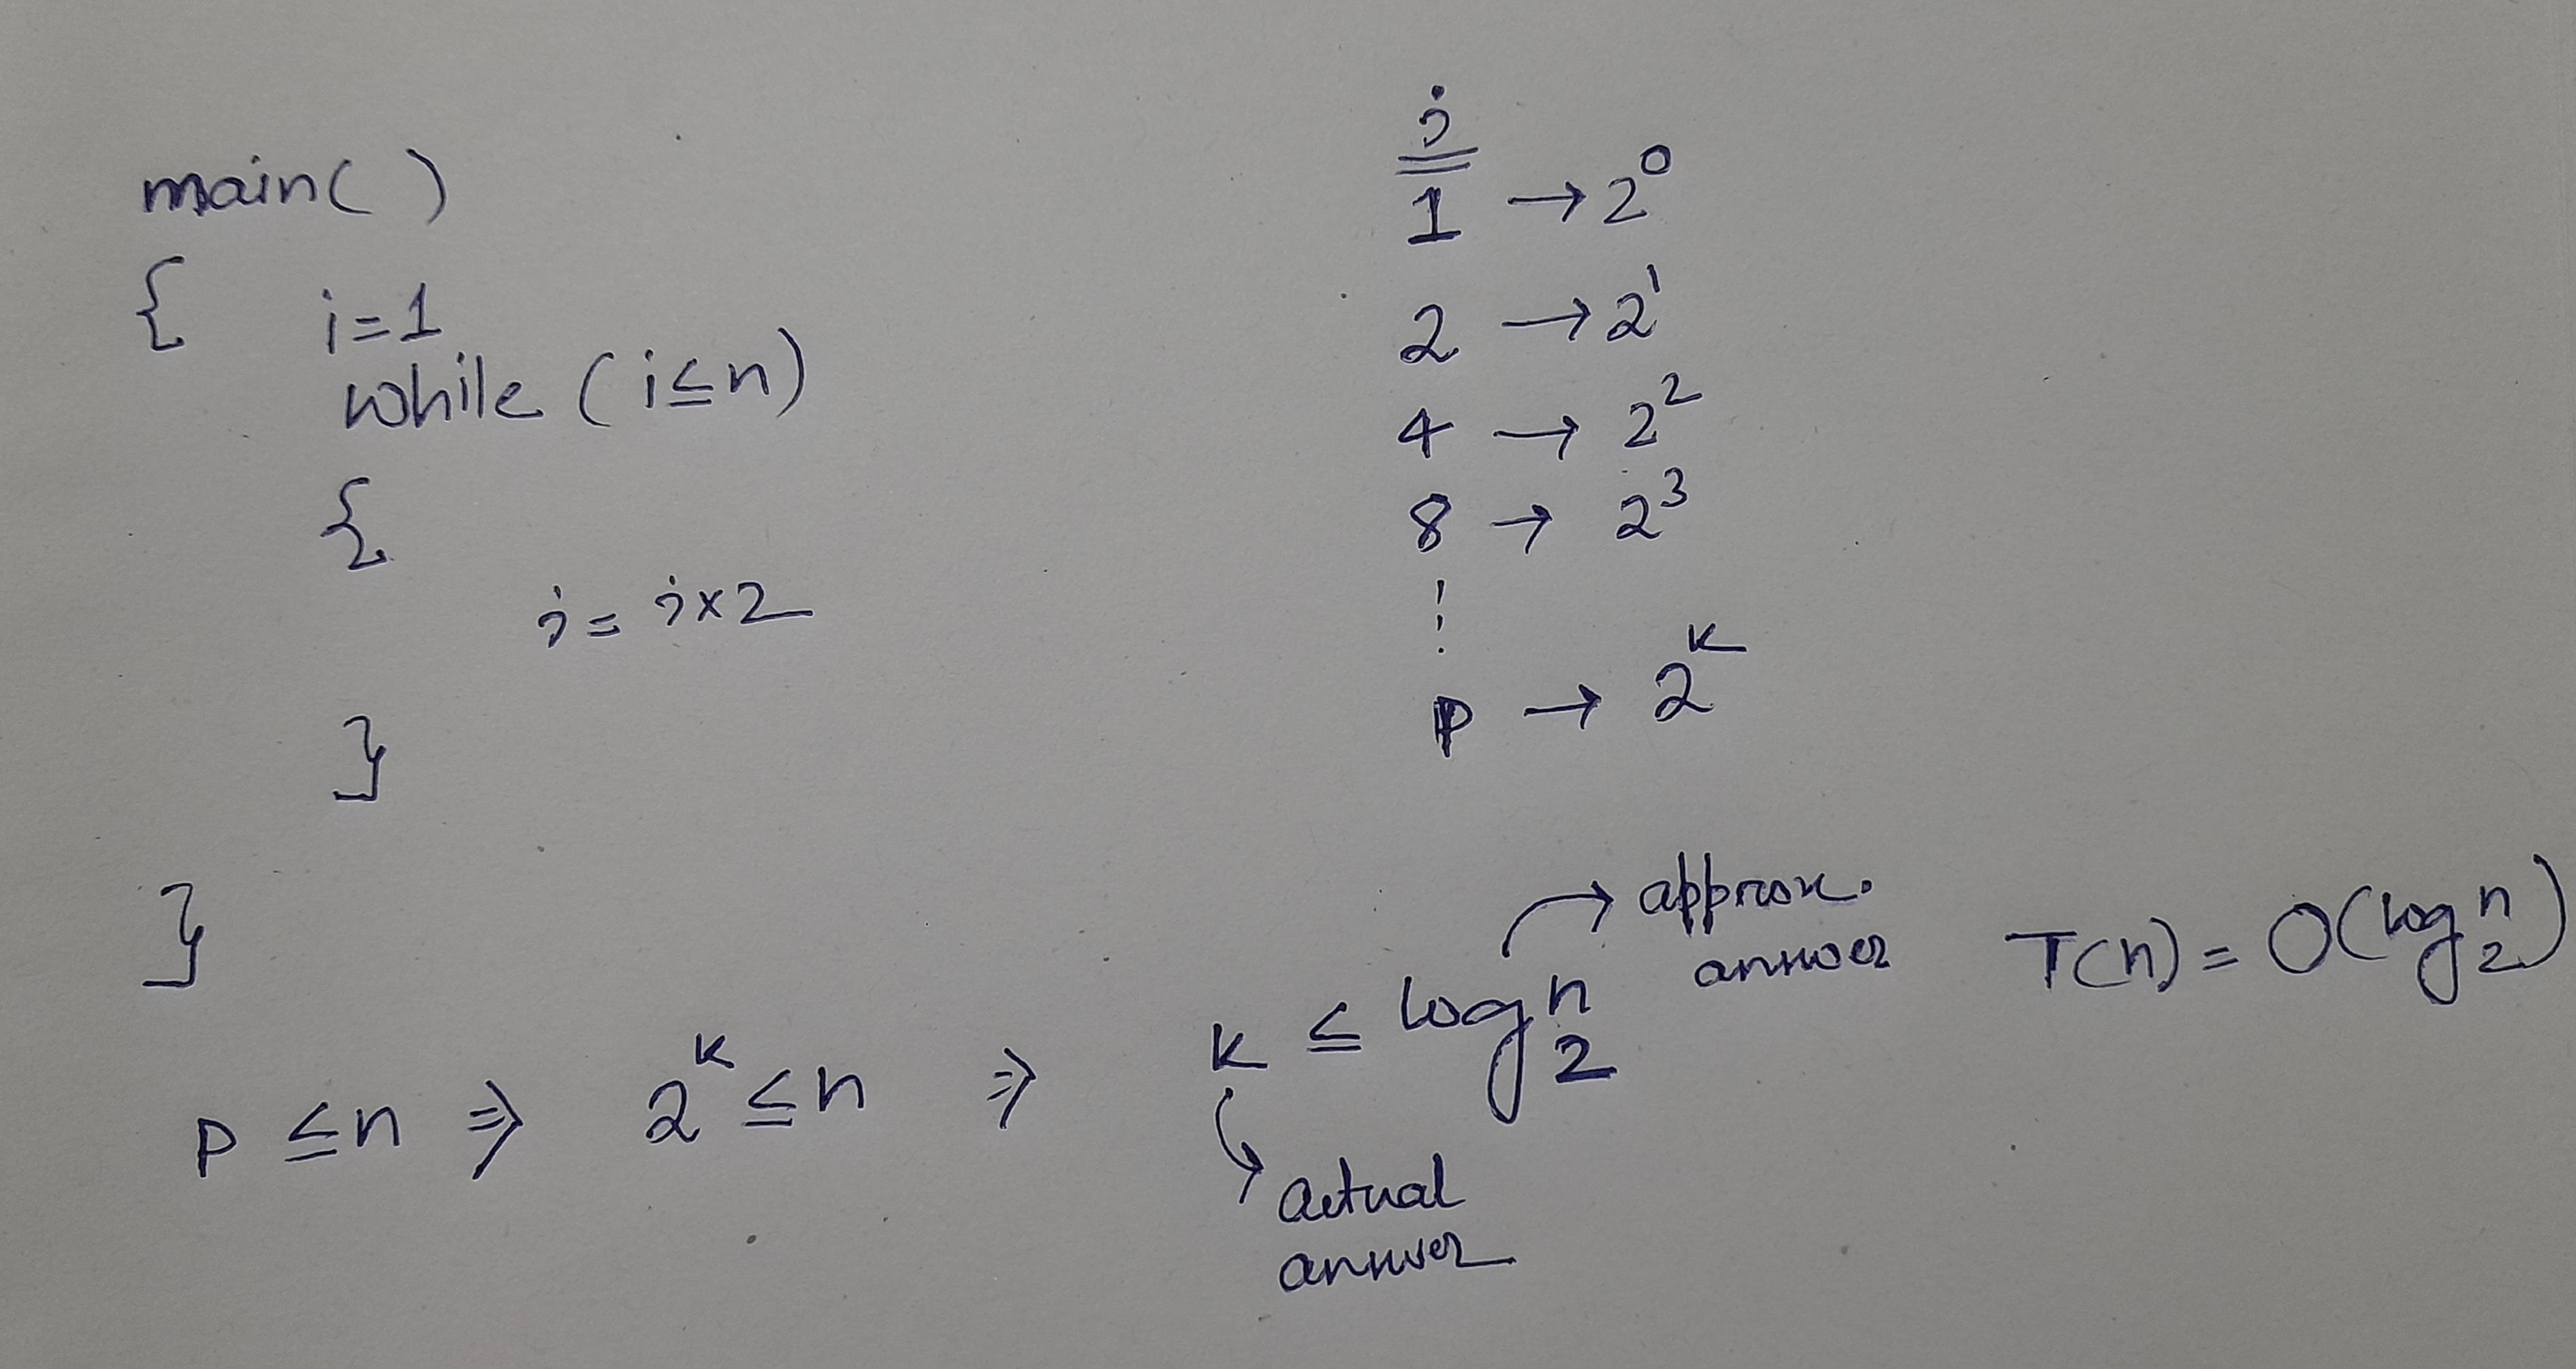 main( )
{ i=1
while (i≤n)
{
i = i×2
}
}
i
1 → 2⁰
2 → 2¹
4 → 2²
8 → 2³
⋮
P → 2ᴷ
P ≤ n ⇒ 2ᴷ ≤ n ⇒ K ≤ log₂ⁿ
approx.
answer
Actual
answer
T(n) = O(log₂ⁿ)